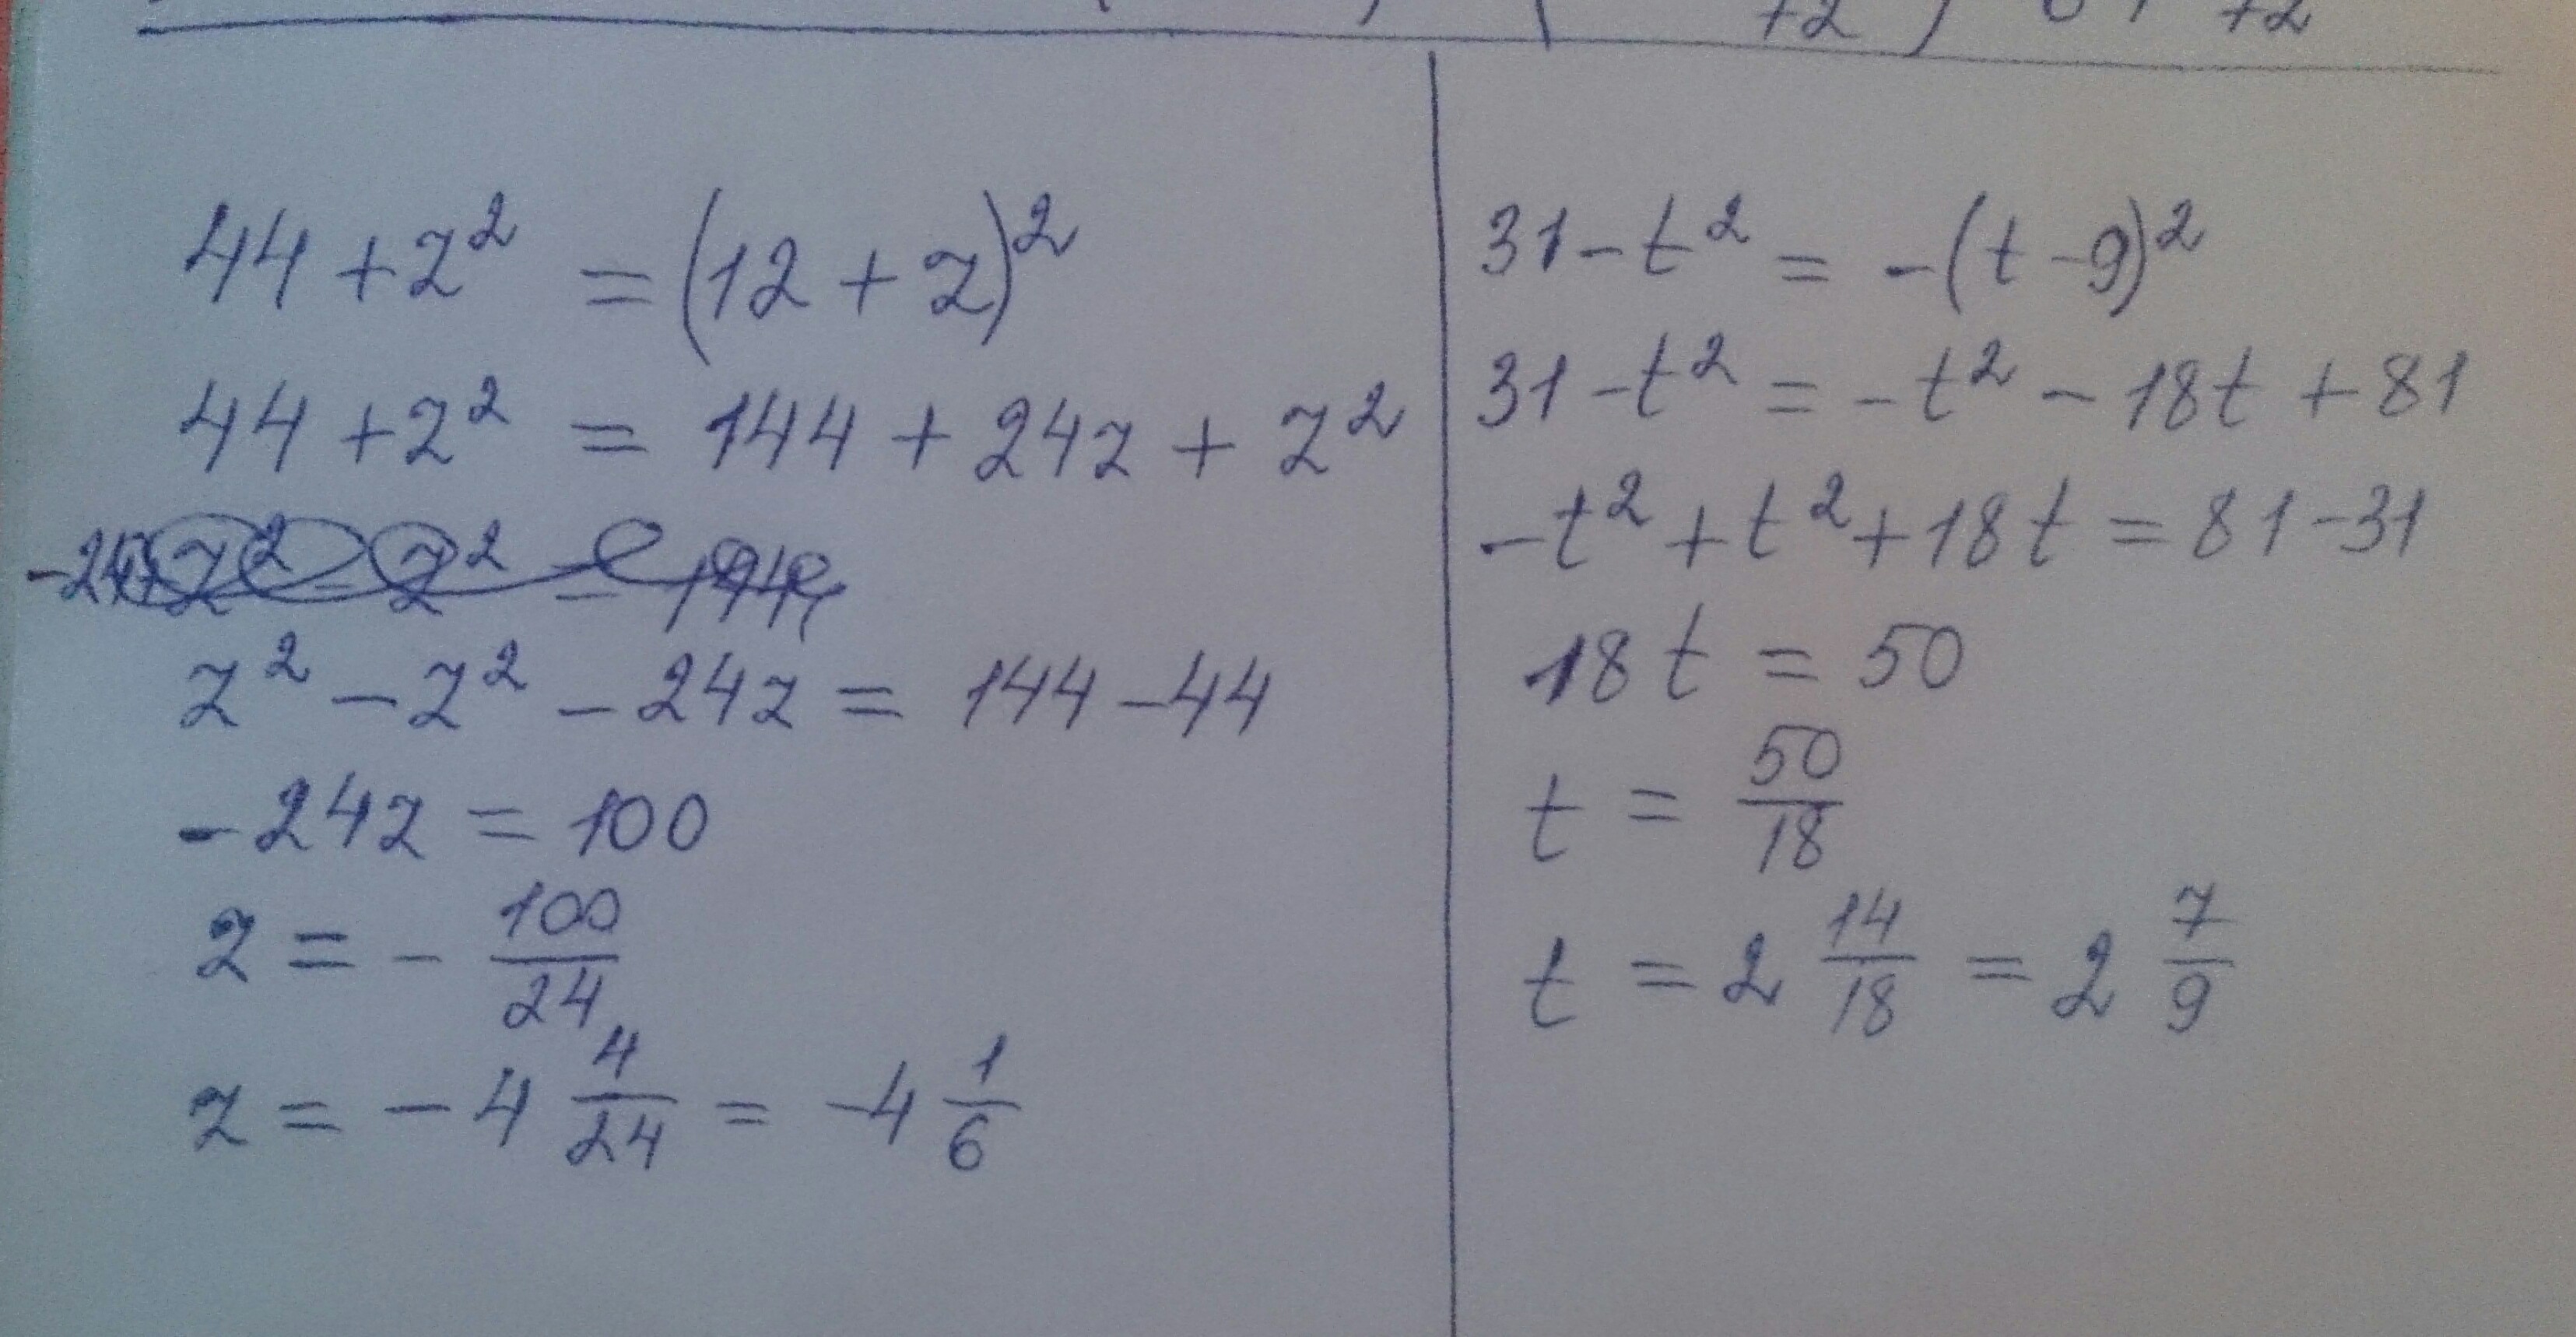 +2 ) +2
44 + z² = (12 + z)²
44 + z² = 144 + 24z + z²
z² - z² - 24z = 144 - 44
-24z = 100
z = - 100/24
z = -4 4/24 = -4 1/6
31 - t² = -(t - 9)²
31 - t² = -t² - 18t + 81
-t² + t² + 18t = 81 - 31
18t = 50
t = 50/18
t = 2 14/18 = 2 7/9